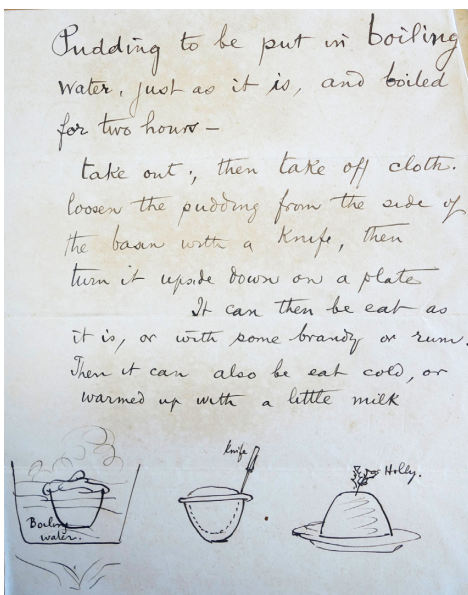 Pudding to be put in boiling
water, just as it is, and boiled
for two hours -
take out; then take off cloth.
loosen the pudding from the side of
the basin with a Knife, then
turn it upside down on a plate
It can then be eat as
it is, or with some brandy or rum.
Then it can also be eat cold, or
warmed up with a little milk
knife
Holly.
Boiling
water.